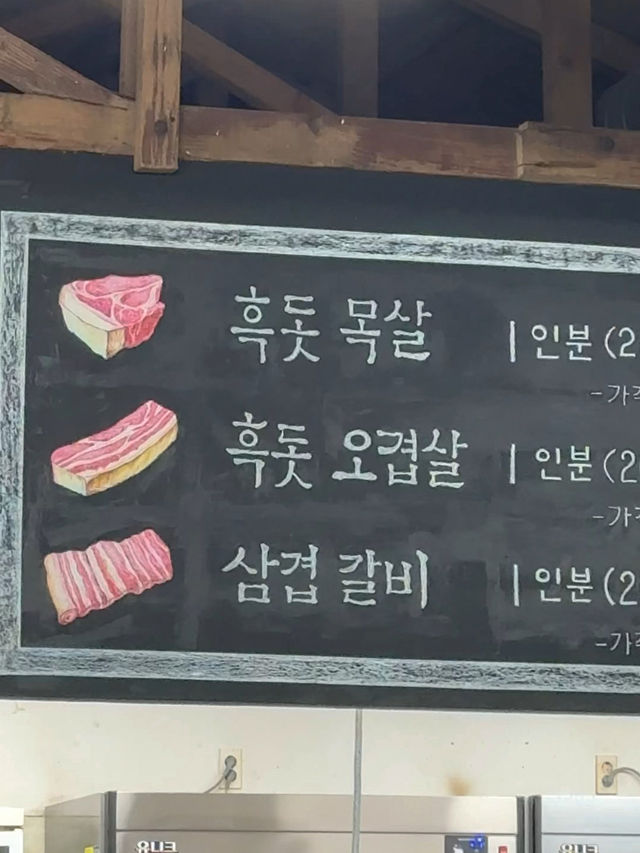 흑돗 목살 1인분 (2
-가
흑돗 오겹살 1인분 (2
-가
삼겹 갈비 1인분 (2
-가
유니크